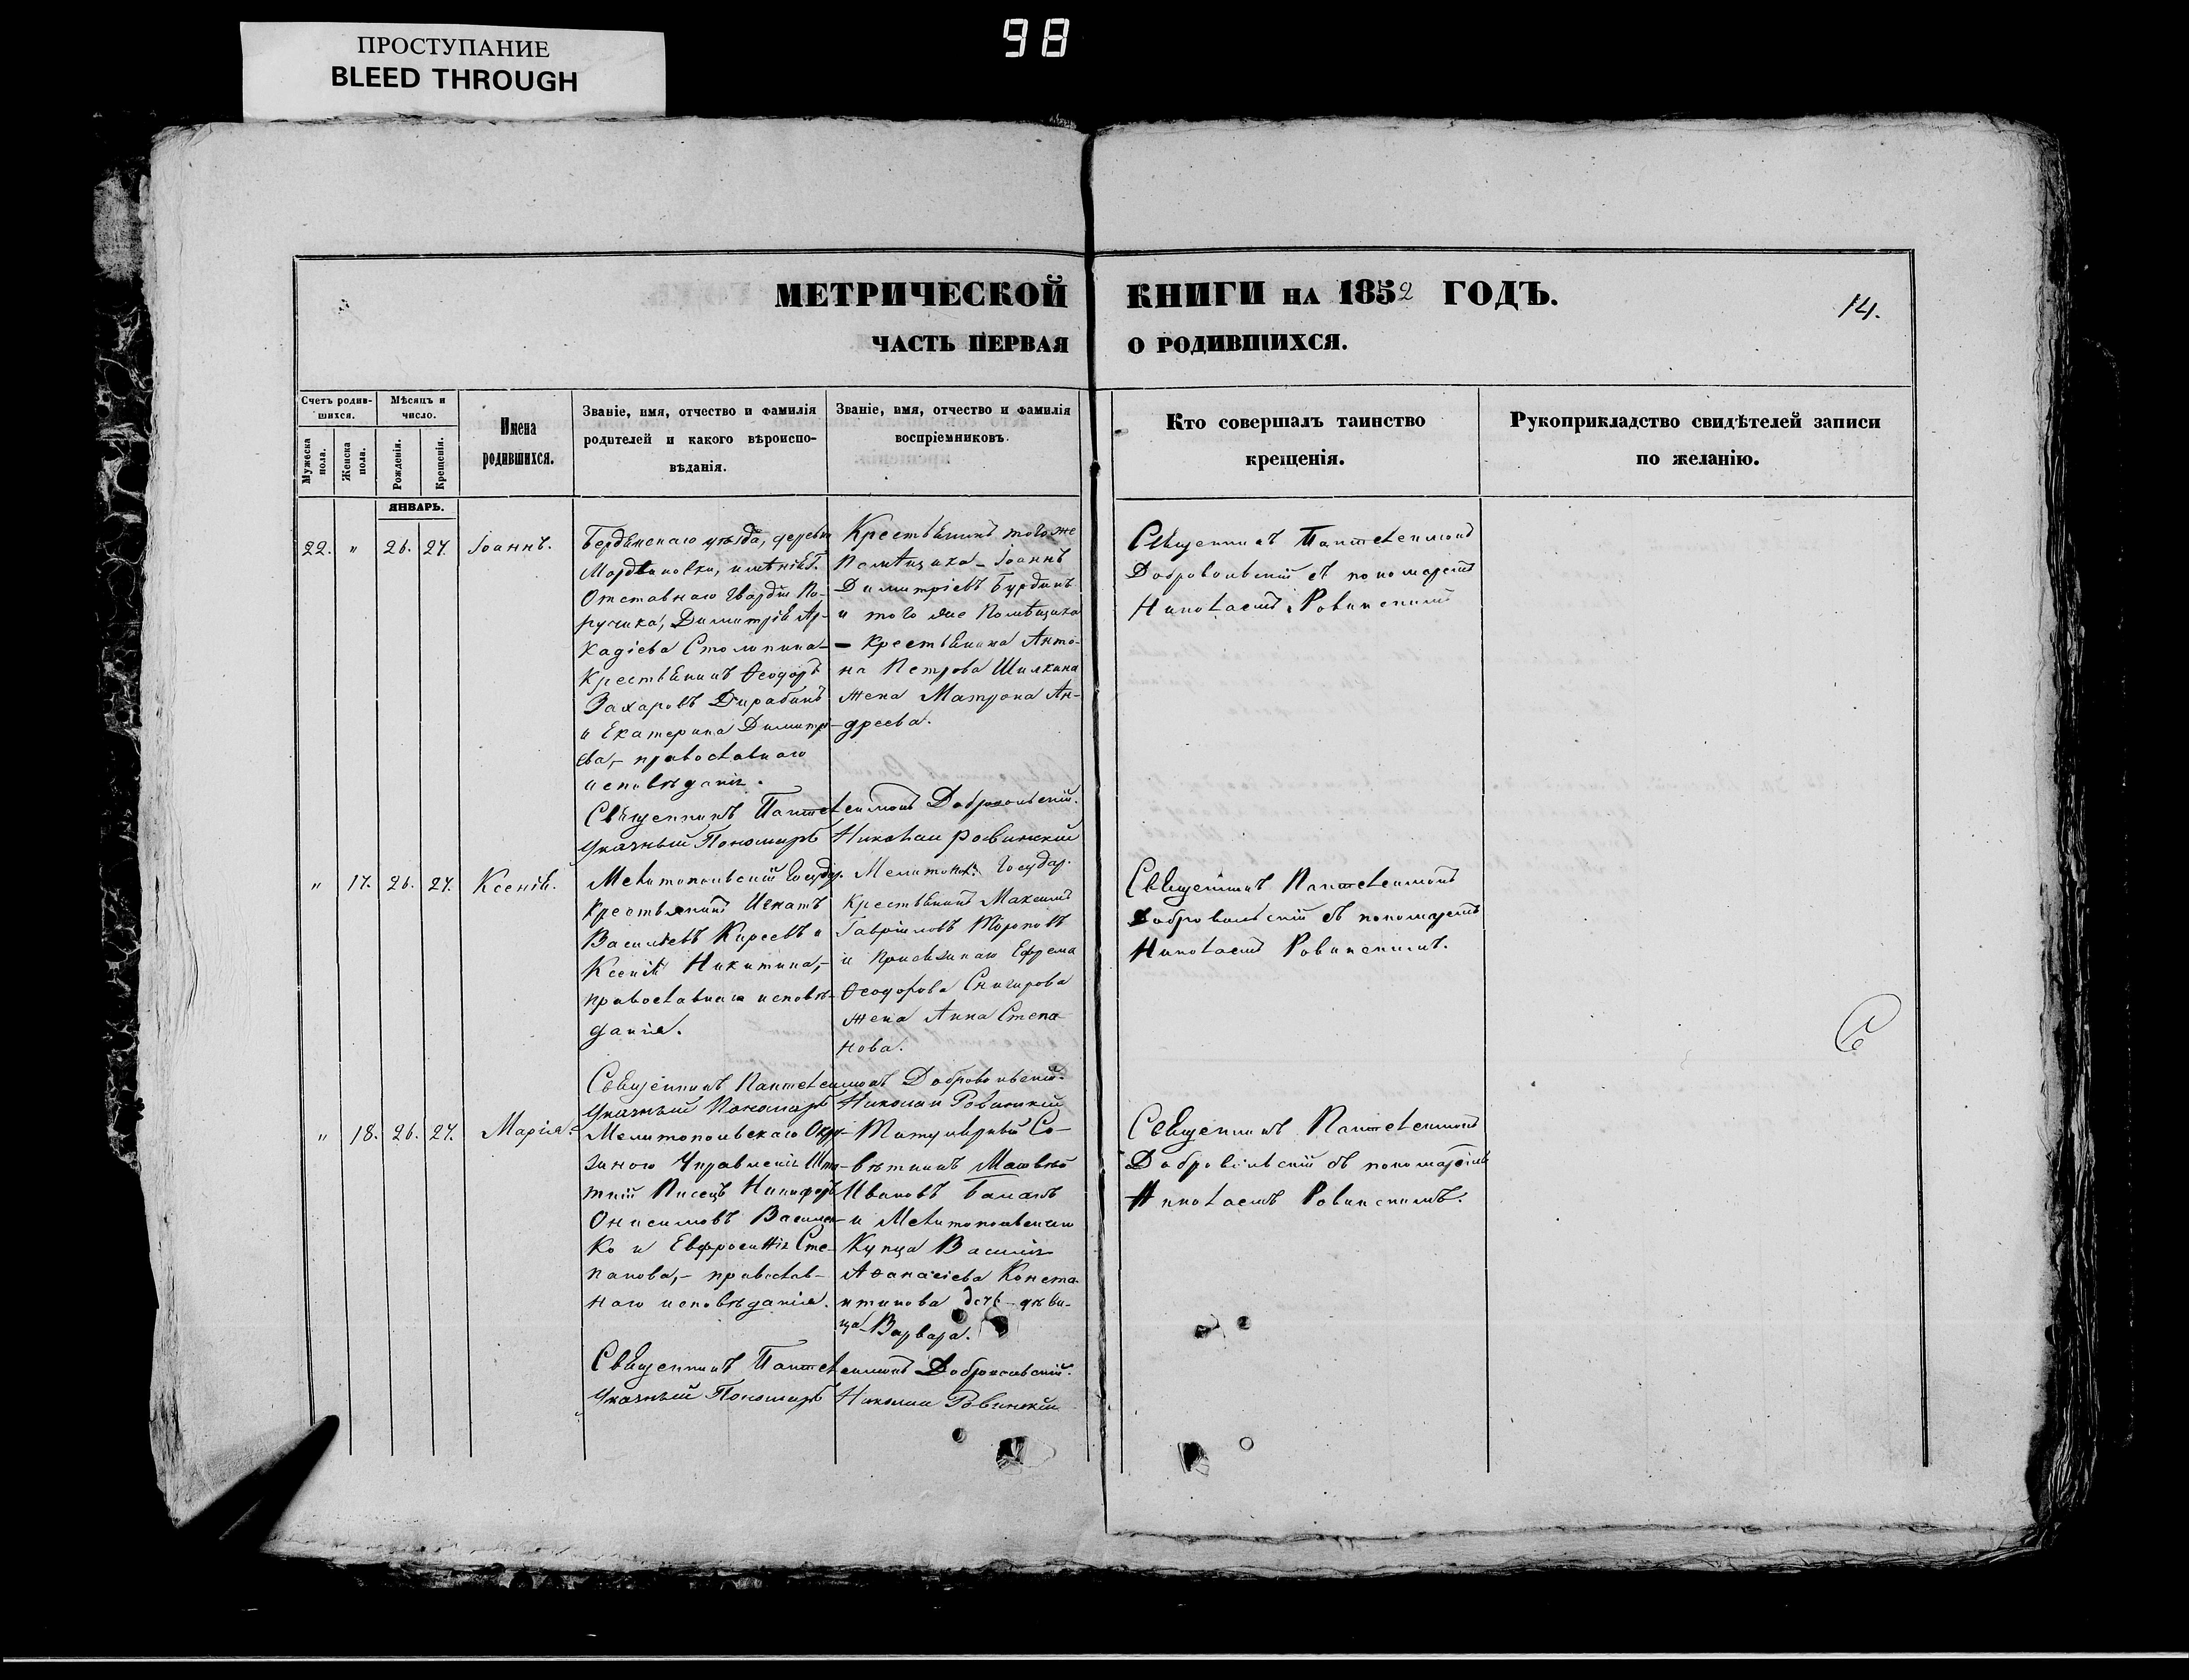 ПРОСТУПАНИЕ
BLEED THROUGH
98
МЕТРИЧЕСКОЙ КНИГИ НА 1852 ГОДЪ.
14.
ЧАСТЬ ПЕРВАЯ О РОДИВШИХСЯ.
Счетъ родив-
шихся.
Мужеска пола.
Женска пола.
Мѣсяцъ и
число.
Рожденія.
Крещенія.
Имена
родившихся.
Званіе, имя, отчество и фамилія
родителей и какого вѣроиспо-
вѣданія.
Званіе, имя, отчество и фамилія
воспріемниковъ.
Кто совершалъ таинство
крещенія.
Рукоприкладство свидѣтелей записи
по желанію.
ЯНВАРЬ.
22. " 26. 27. Іоаннъ.
Бердянскаго уѣзда, деревни
Мордвиновки, имѣнія Г.
Отставнаго Гвардіи По-
ручика, Димитрія Ар-
кадіева Столыпина
Крестьянинъ Ѳеодоръ
Захаровъ
и Екатерина Димитрі-
ева,- православнаго
исповѣданія.
Крестьянинъ того же
Помѣщика - Іоаннъ
Димитріевъ Бурдинъ
и того же Помѣщика
- Крестьянина Анто-
на Петрова Шилкина
жена Матрона Ан-
дреева.
Священникъ Пантелеимонъ
Добровольскій съ пономаремъ
Николаемъ Ровинскимъ
Священникъ Пантелеимонъ Добровольскій.
Указный Пономарь Николай Ровинскій
" 17. 26. 27. Ксенія.
Мелитопольскій Государ.
Крестьянинъ Игнатъ
Васильевъ Киреевъ и
Ксенія Никитина,-
православнаго исповѣ-
данія.
Мелитопол. Государ.
Крестьянинъ Максимъ
Гавріиловъ
и Ефрема
Ѳеодорова Снигирова
жена Анна Степа-
нова.
Священникъ Пантелеимонъ
Добровольскій съ пономаремъ
Николаемъ Ровинскимъ.
Священникъ Пантелеимонъ Добровольскій.
Указный Пономарь Николай Ровинскій
" 18. 26. 27. Марія.
Мелитопольскаго Окру-
жного Управленія Шта-
тній Писецъ Никифоръ
Онисимовъ Василен-
ко и Евфросинія Сте-
панова,- православ-
наго исповѣданія.
Титулярный Со-
вѣтникъ Матвѣй
Ивановъ
и Мелитопольскаго
Купца Василія
Аѳанасіева Конста-
нтинова дочь - дѣви-
ца Варвара.
Священникъ Пантелеимонъ
Добровольскій съ пономаремъ
Николаемъ Ровинскимъ.
Священникъ Пантелеимонъ Добровольскій.
Указный Пономарь Николай Ровинскій